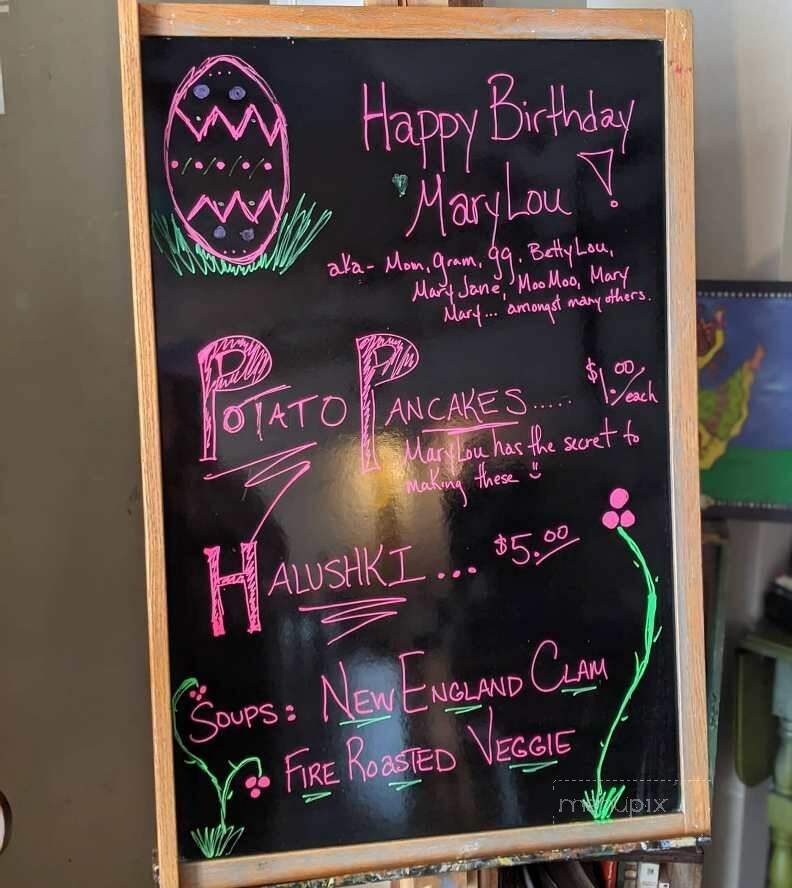 Happy Birthday
MaryLou!
aka - Mom, gram, gg, BettyLou,
Mary Jane, MooMoo, Mary
Mary... amongst many others.
POTATO PANCAKES..... $1.00/each
MaryLou has the secret to
making these
HALUSHKI... $5.00
SOUPS: NEW ENGLAND CLAM
FIRE ROASTED VEGGIE
menupix